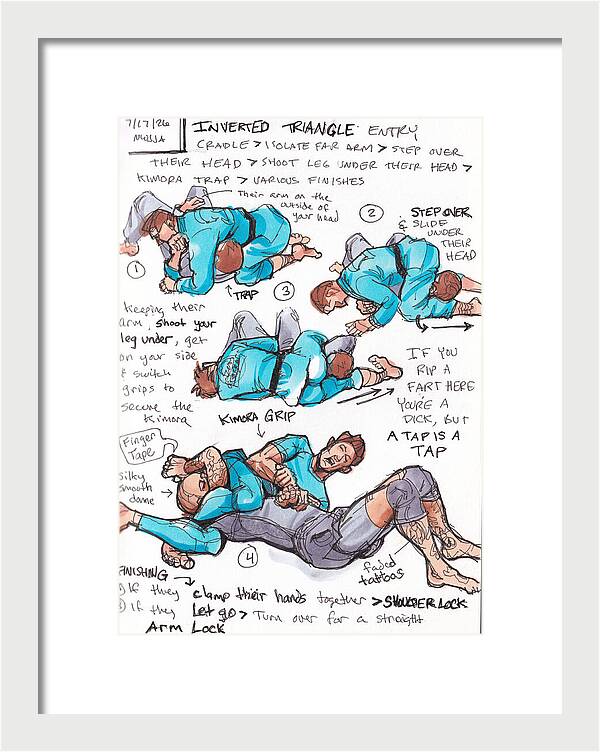 7/17/26
INVERTED TRIANGLE ENTRY
CRADLE > ISOLATE FAR ARM > STEP OVER
THEIR HEAD > SHOOT LEG UNDER THEIR HEAD >
KIMORA TRAP > VARIOUS FINISHES
Their arm on the
outside of
your head
1
TRAP
2
STEP OVER
& SLIDE
UNDER
THEIR
HEAD
3
keeping their
arm, shoot your
leg under, get
on your side
& switch
grips to
secure the
Kimora
KIMORA GRIP
IF YOU
RIP A
FART HERE
YOU'RE A
DICK, BUT
A TAP IS A
TAP
Finger
Tape
silky
smooth
dome
4
faded
tattoos
FINISHING
1) If they clamp their hands together > SHOULDER LOCK
2) if they Let go > Turn over for a straight
Arm Lock